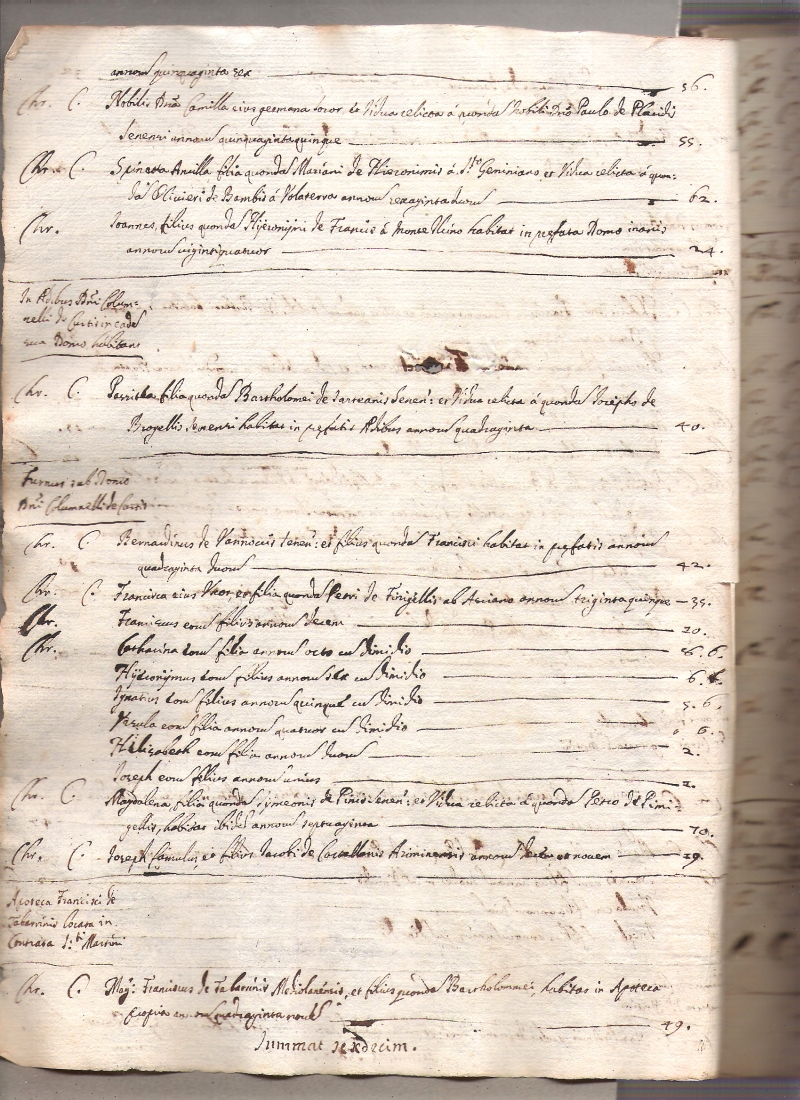 annorum quinquaginta sex 56.
Chr. C. Nobilis Dna Camilla eius germana soror et Vidua relicta á quondã Nobili Dno Paulo de Placidis
Senensi annorum quinquaginta quinque 55.
Chr. C. Spineta Ancilla filia quondã Mariani de Hieronimis á S.to Geminiano, et Vidua relicta á quon=
dã Olivieri de Bambis á Volaterra annorum sexaginta duorum 62.
Chr. Ioannes filius quondã Hyeronymi de Francis á Monte Ilcino habitat in prefata Domo
annorum viginti quatuor 24.
In Ædibus Dni Colum=
nelli de Curtis in eadẽ
sua Domo habitans
Chr. C. filia quondã Bartholomei de Senen: et Vidua relicta á quondã Josepho de
Senensi habitat in prefatis Ædibus annorum quadraginta 40.
Furnus sub Domo
Dni Columnelli de
Chr. C. Bernardinus de Vannociis Senen: et filius quondã Francisci habitat in prefatis annorum
quadraginta duorum 42.
Chr. C. Francisca eius Uxor et filia quondã Petri de ab Asciano annorum triginta quinque 35.
Chr. Franciscus eorum filius annorum decem 10.
Chr. Catharina eorum filia annorum octo cũ dimidio 8.6.
Hyeronymus eorum filius annorum sex cũ dimidio 6.6.
Ignatius eorum filius annorum quinque cũ dimidio 5.6.
Ursula eorum filia annorum quatuor cũ dimidio 6.
Helisabeth eorum filia annorum duorum 2.
Joseph eorum filius annorum unius 1.
Chr. C. Magdalena filia quondã Symeonis de Pinis Senen: et Vidua relicta á quondã Petro de
gellis, habitat ibidẽ annorum septuaginta 70.
Chr. C. Joseph famulus, et filius Iacobi de Ariminensis annorum decem et novem 19.
Apoteca Francisci de
Tabarrinis locata in
Contrata S.ti Martini
Chr. C. Mag: Franciscus de Tabarrinis Mediolanensis, et filius quondã Bartholommei, habitat in Apoteca
annorum quadraginta novẽ 49.
Summat sexdecim.